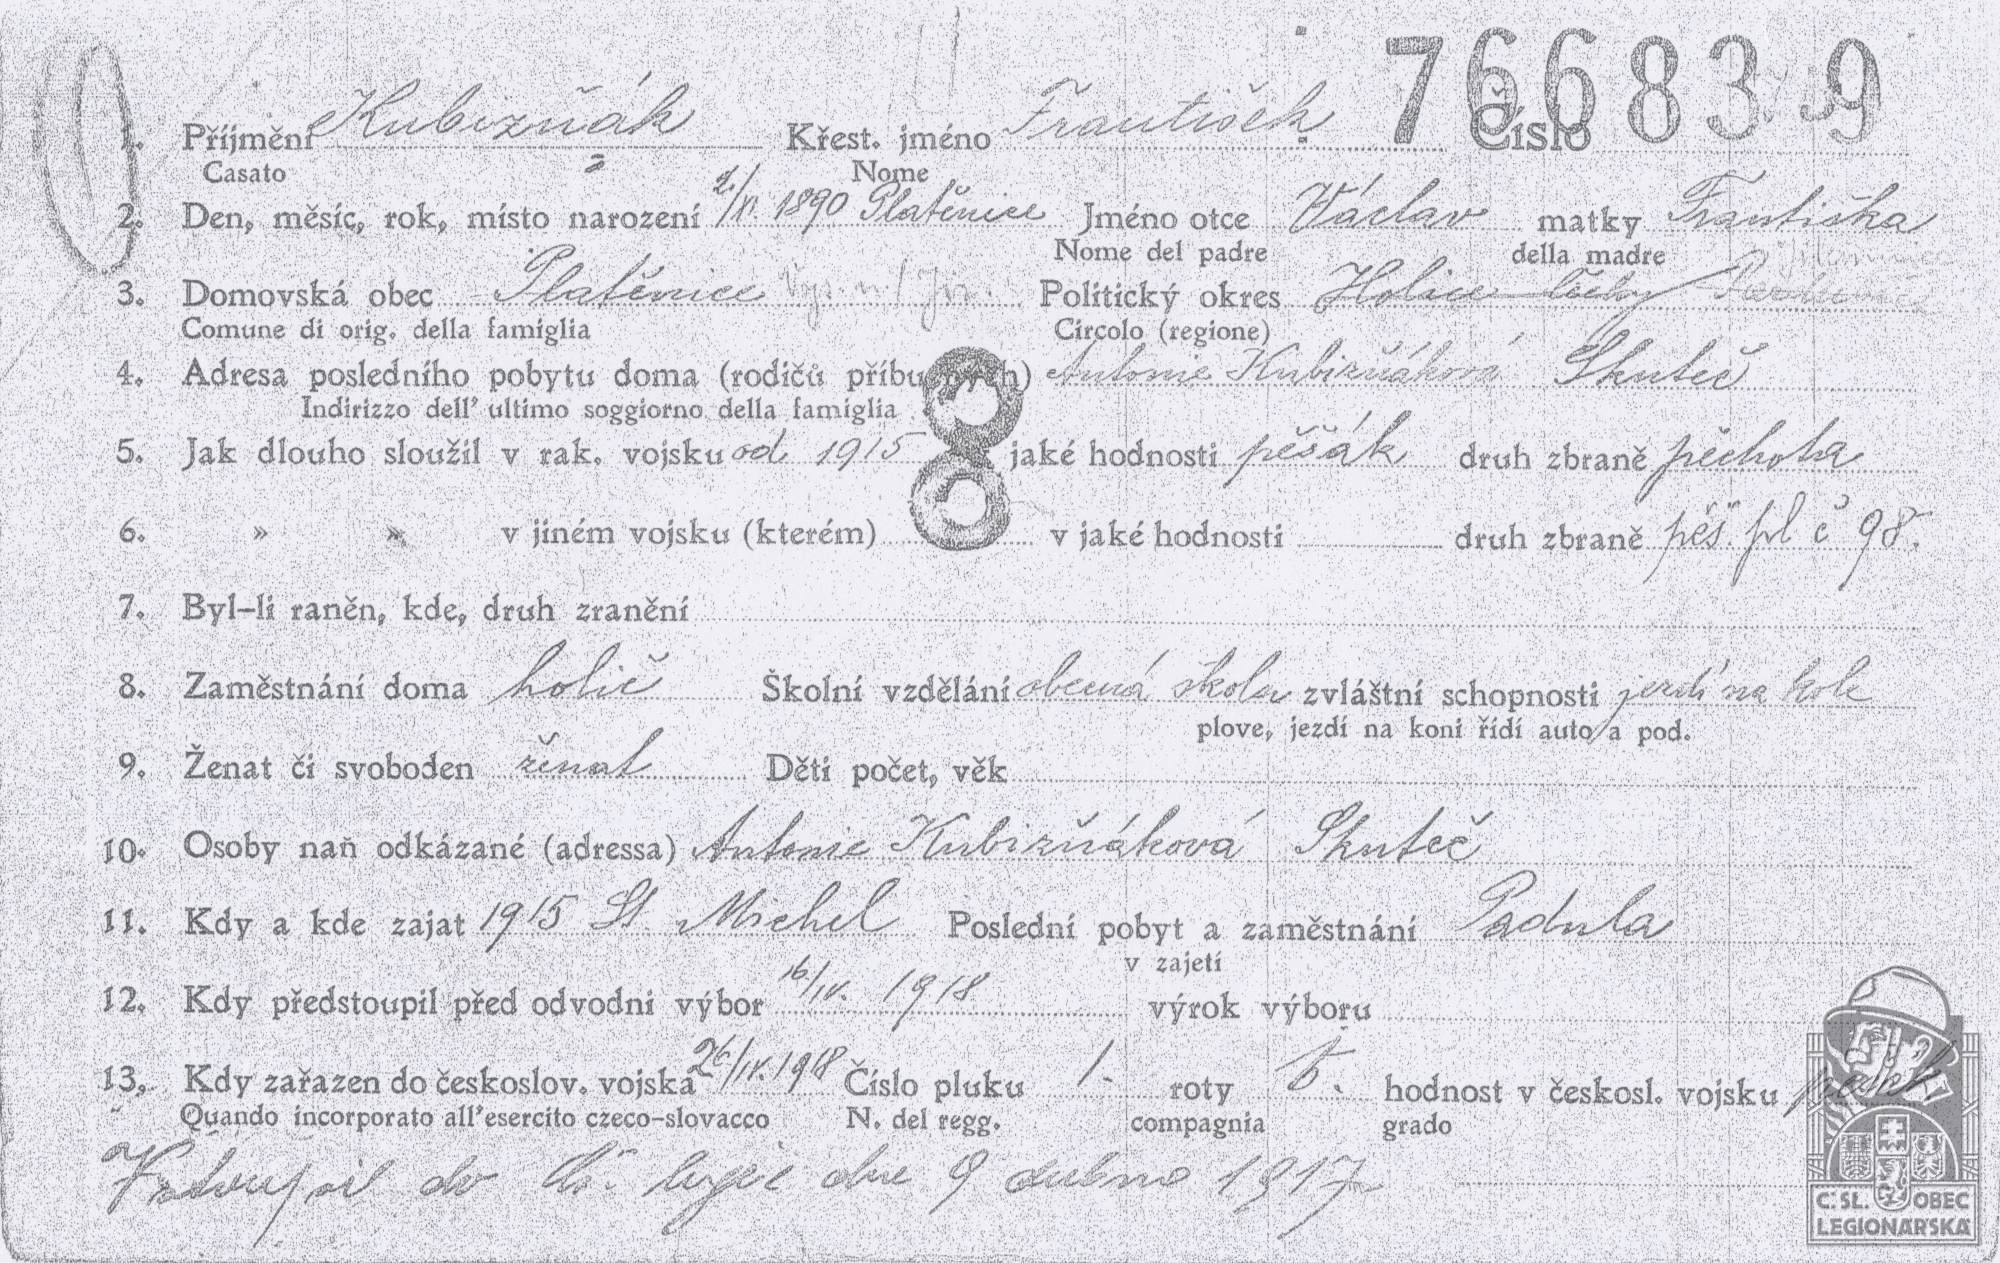 766839
1. Příjmění Kubizňák Křest. jméno František Číslo
Casato Nome
2. Den, měsíc, rok, místo narození 2/IV. 1890 Platěnice Jméno otce Václav matky Františka
Nome del padre della madre
3. Domovská obec Platěnice Politický okres Holice Čechy
Comune di orig. della famiglia Circolo (regione)
4. Adresa posledního pobytu doma (rodičů příbuzných) Antonie Kubizňáková Skuteč
Indirizzo dell' ultimo soggiorno della famiglia
5. Jak dlouho sloužil v rak. vojsku od 1915 jaké hodnosti pěšák druh zbraně pěchota
6. » » v jiném vojsku (kterém) v jaké hodnosti druh zbraně pěš. pl č 98.
7. Byl-li raněn, kde, druh zranění
8. Zaměstnání doma holič Školní vzdělání obecná škola zvláštní schopnosti jezdí na kole
plove, jezdí na koni řídí auto a pod.
9. Ženat či svoboden ženat Děti počet, věk
10. Osoby naň odkázané (adressa) Antonie Kubizňáková Skuteč
11. Kdy a kde zajat 1915 St. Michel Poslední pobyt a zaměstnání Padula
v zajetí
12. Kdy předstoupil před odvodni výbor 16/IV. 1918 výrok výboru
13. Kdy zařazen do českoslov. vojska 26/IV. 1918 Číslo pluku 1. roty hodnost v českosl. vojsku pěšák
Quando incorporato all'esercito czeco-slovacco N. del regg. compagnia grado
Vstoupil do čs. legie dne 9 dubna 1917
Č. SL. OBEC
LEGIONÁŘSKÁ